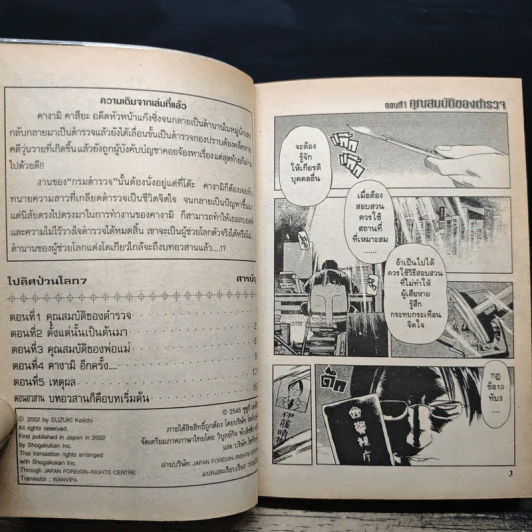 ความเดิมจากเล่มที่แล้ว
คางามิ คาสึยะ อดีตหัวหน้าแก๊งซิ่งจนกลายเป็นตำนานในหมู่นักเลง
กลับกลายมาเป็นตำรวจแล้วยังได้เลื่อนขั้นเป็นตำรวจกองปราบต้องคลี่คลาย
คดีวุ่นวายที่เกิดขึ้น แล้วยังถูกผู้บังคับบัญชาคอยจ้องหาเรื่องแต่สุดท้ายก็ผ่าน
ไปด้วยดี!!
งานของ"กรมตำรวจ"นั้นต้องนั่งอยู่แต่ที่โต๊ะ คางามิก็ต้องเจอกับ
ทนายความสาวที่เกลียดตำรวจเป็นชีวิตจิตใจ จนกลายเป็นปัญหาขึ้นมา
แต่นิสัยตรงไปตรงมาในการทำงานของคางามิ ก็สามารถทำให้เธอ
และความไม่ไว้วางใจตำรวจได้หมดสิ้น เขาจะเป็นผู้ช่วยโลกตัวจริงได้หรือไม่
ตำนานของผู้ช่วยโลกแห่งโตเกียวใกล้จะถึงบทอวสานแล้ว....!?
โปลิศป่วนโลก7
สารบัญ
ตอนที่1 คุณสมบัติของตำรวจ
ตอนที่2 ตั้งแต่นั้นเป็นต้นมา
ตอนที่3 คุณสมบัติของพ่อแม่
ตอนที่4 คางามิ อีกครั้ง....
ตอนที่5 เหตุผล
ตอนอวสาน บทอวสานก็คือบทเริ่มต้น
© 2002 by SUZUKI Keiichi
All rights reserved.
First published in Japan in 2002
by Shogakukan Inc.
Thai translation rights arranged
with Shogakukan Inc.
Through JAPAN FOREIGN-RIGHTS CENTRE
Translator : WANVIPA
© 2545
ภายใต้ลิขสิทธิ์ถูกต้อง โดยบริษัท
จัดเตรียมภาคภาษาไทยโดย
ผ่านบริษัท JAPAN FOREIGN-RIGHTS CENTRE
ตอนที่1 คุณสมบัติของตำรวจ
จะต้อง
รู้จัก
ให้เกียรติ
บุคคลอื่น
เมื่อต้อง
สอบสวน
ควรใช้
สถานที่
ที่เหมาะสม
......
ถ้าเป็นไปได้
ควรใช้วิธีสอบสวน
ที่ไม่ทำให้
ผู้เสียหาย
รู้สึก
กระทบกระเทือน
จิตใจ
กฎ
ข้อ10
ทับ3
......
警視庁
3